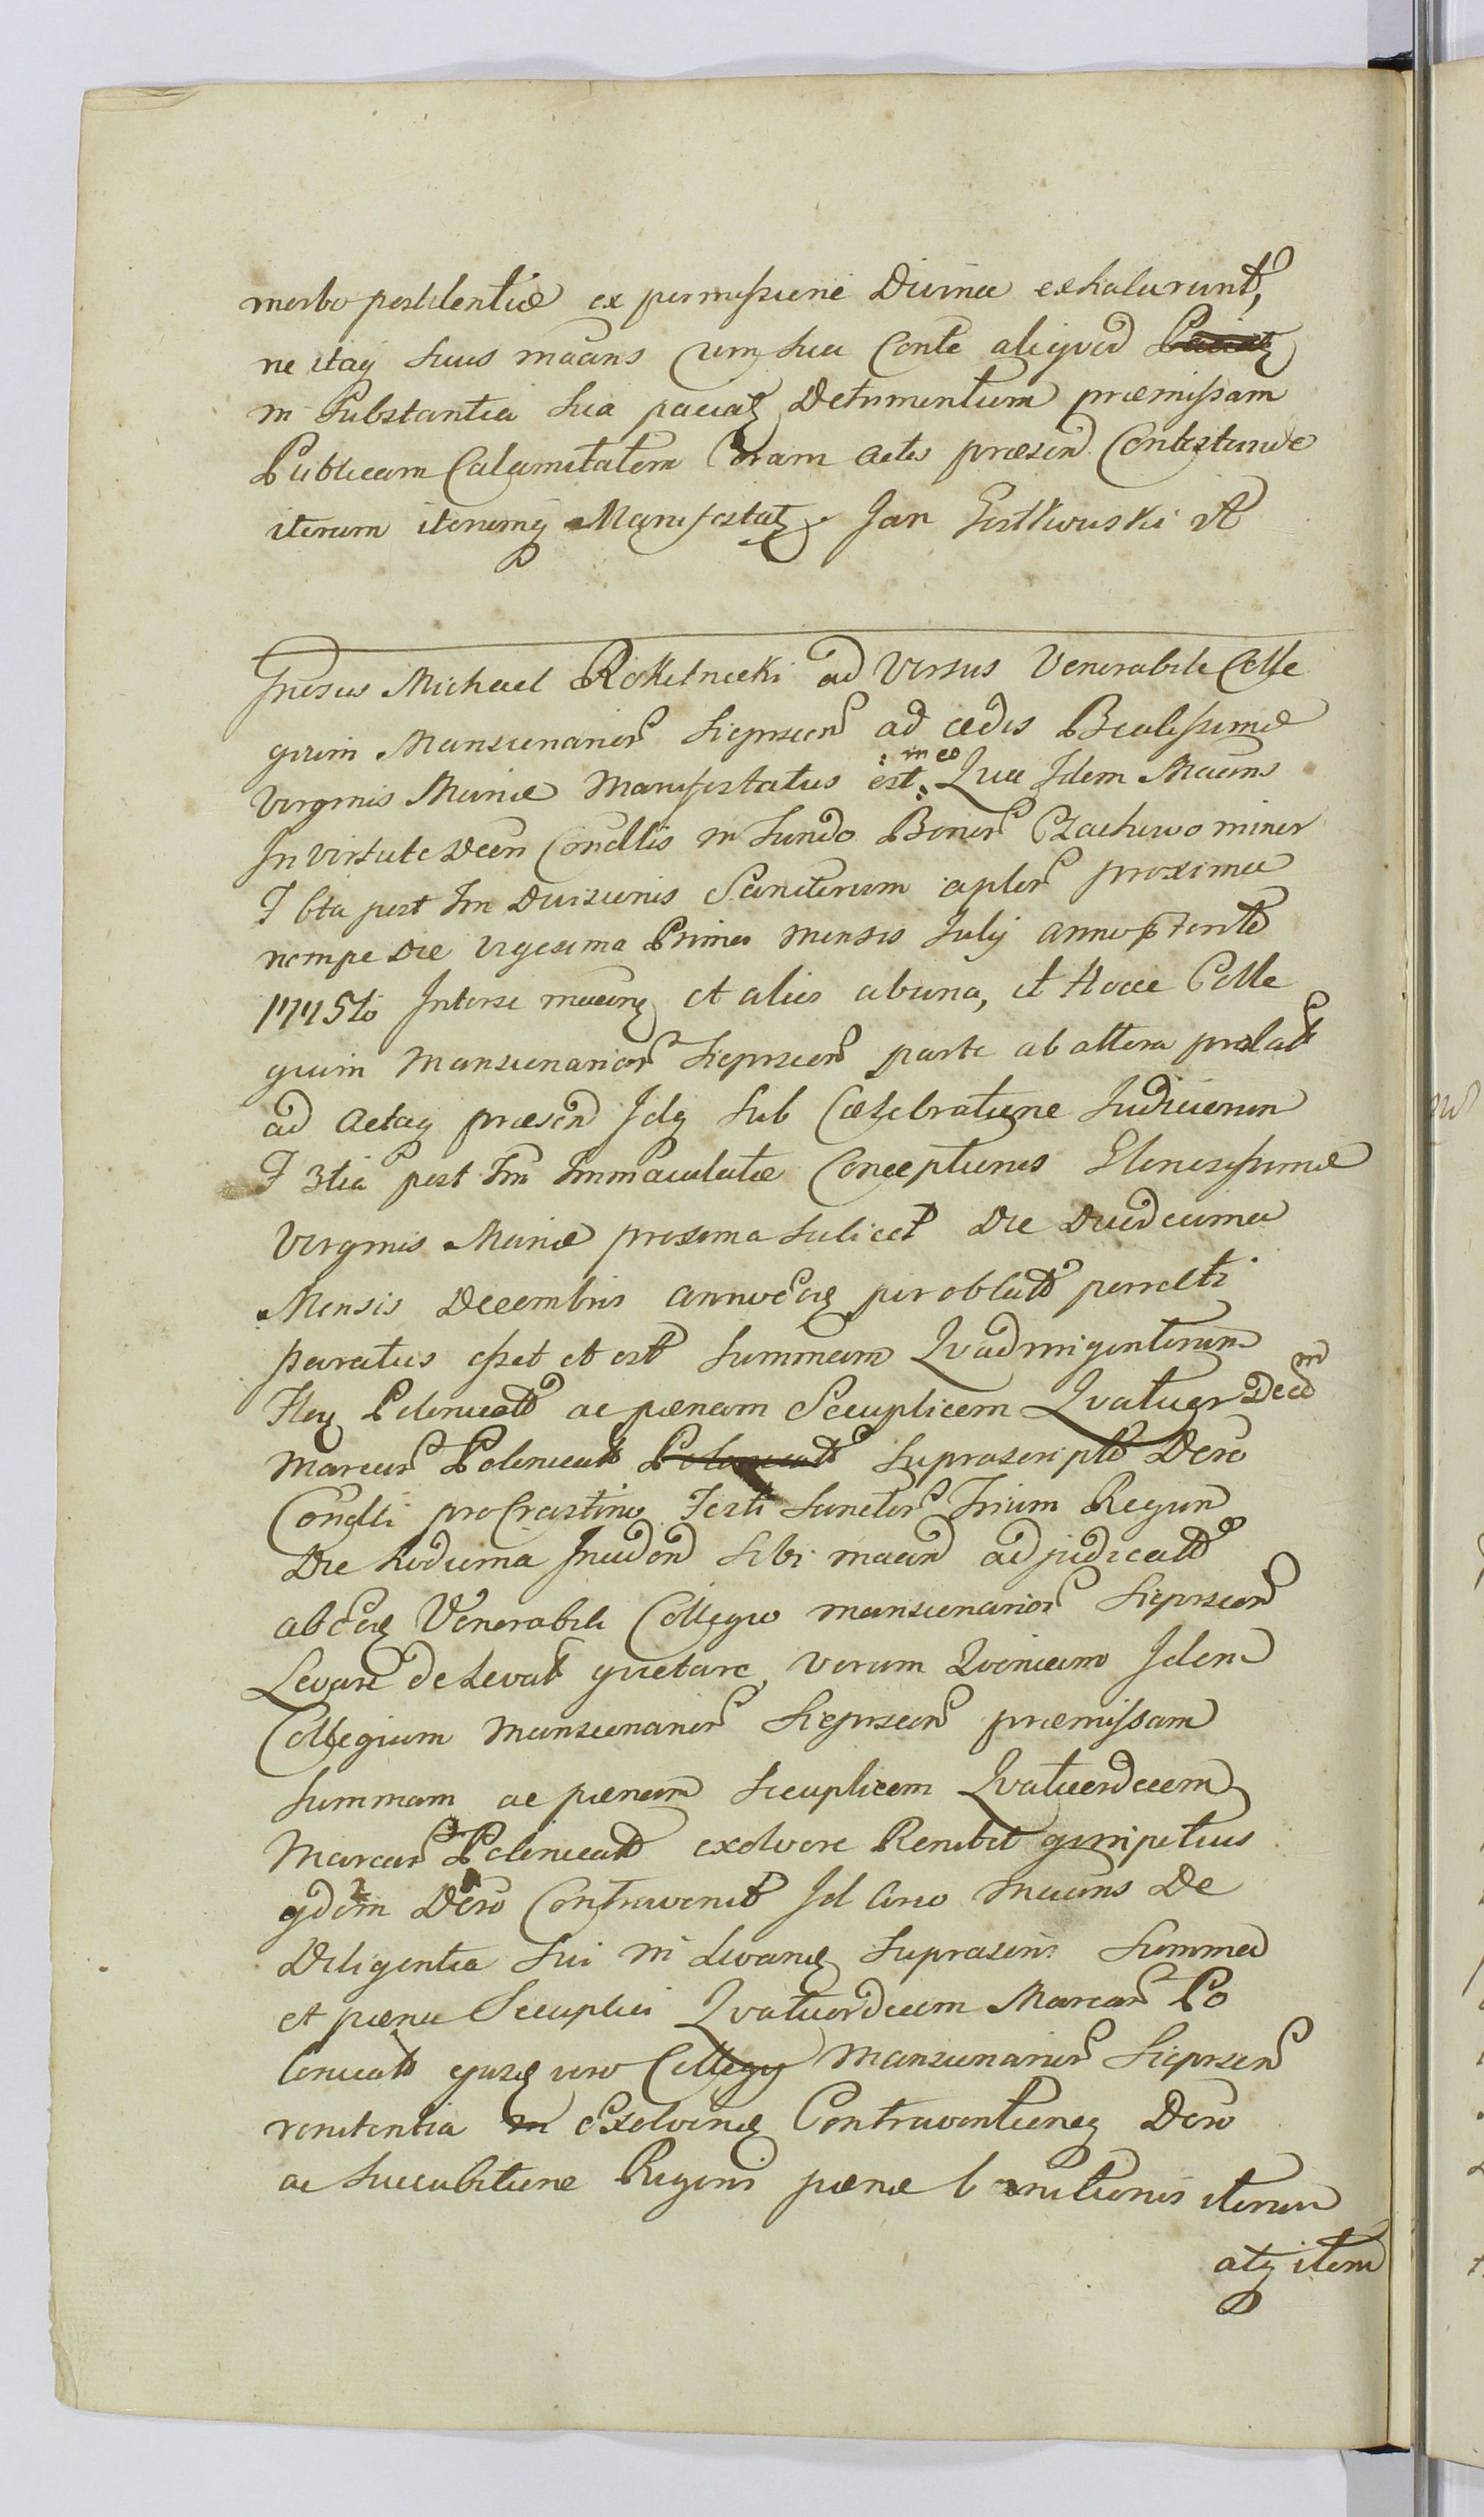 morbo pestilentiæ ex permissione Divina exhalarunt,
ne itaq suus maans cum sua Conte aliquod
in Substantia sua paciaz Detrimentum præmissam
Publicam Calamitatem Coram actis præsen Contestande
iterum iterumq Manifestatz Jan
Michael Rokitnicki ad versus Venerabile Colle
gium Mansionarior Sieprscen ad ædes Beatissimæ
Virginis Mariæ Manifestatus est in eo Qua Idem Maans
In virtute Decn Condlis in fundo Bonor Czachowo minor
F 6ta post Fm Divisionis Sanctorum aplor proxima
nempe Die vigesima Prima mensis Julij anno
1775to Interse maanz et alios abuna, et Hocce Colle
gium Mansionarior Sieprscen parte ab altera prolat
ad actaq præsen Idq sub Cælebratione Judiciorum
F 3tia post Fm Immaculatæ Conceptionis Glorisissimæ
Virginis Mariæ proxima scilicet Die Duodecima
Mensis Decembris per oblat porrecti
paratus esset et est summam Quadringentorum
Flor Polonicat ac pænam Secuplicem Quatuor Decem
Marcar Polonicat Polonicat Suprascripto Dcro
Condli pro Crastino Festi Sanctor Trium Regum
Die hodierna Inciden sibi maan adjudicat
Venerabili Collegio mansionarior Sieprscen
Levare de Levat quietare, verum Quoniam Idem
Collegium Mansionarior Sieprscen præmissam
summam ac pænam Secuplicem Quatuordecem
Marcar Polonicat exolvere Renibit
Dcro Contravenit Maans De
Diligentia sui in levanz suprascri Summa
et pæna Secuplici Quatuordecem Marcar Po
lonicat ejusq vero Collegy Mansionarior Sieprscen
renitentia in exolvenz Contraventioneq Dcro
ac succubitione Rigoris pænæ banitionis iterum
atq iterum